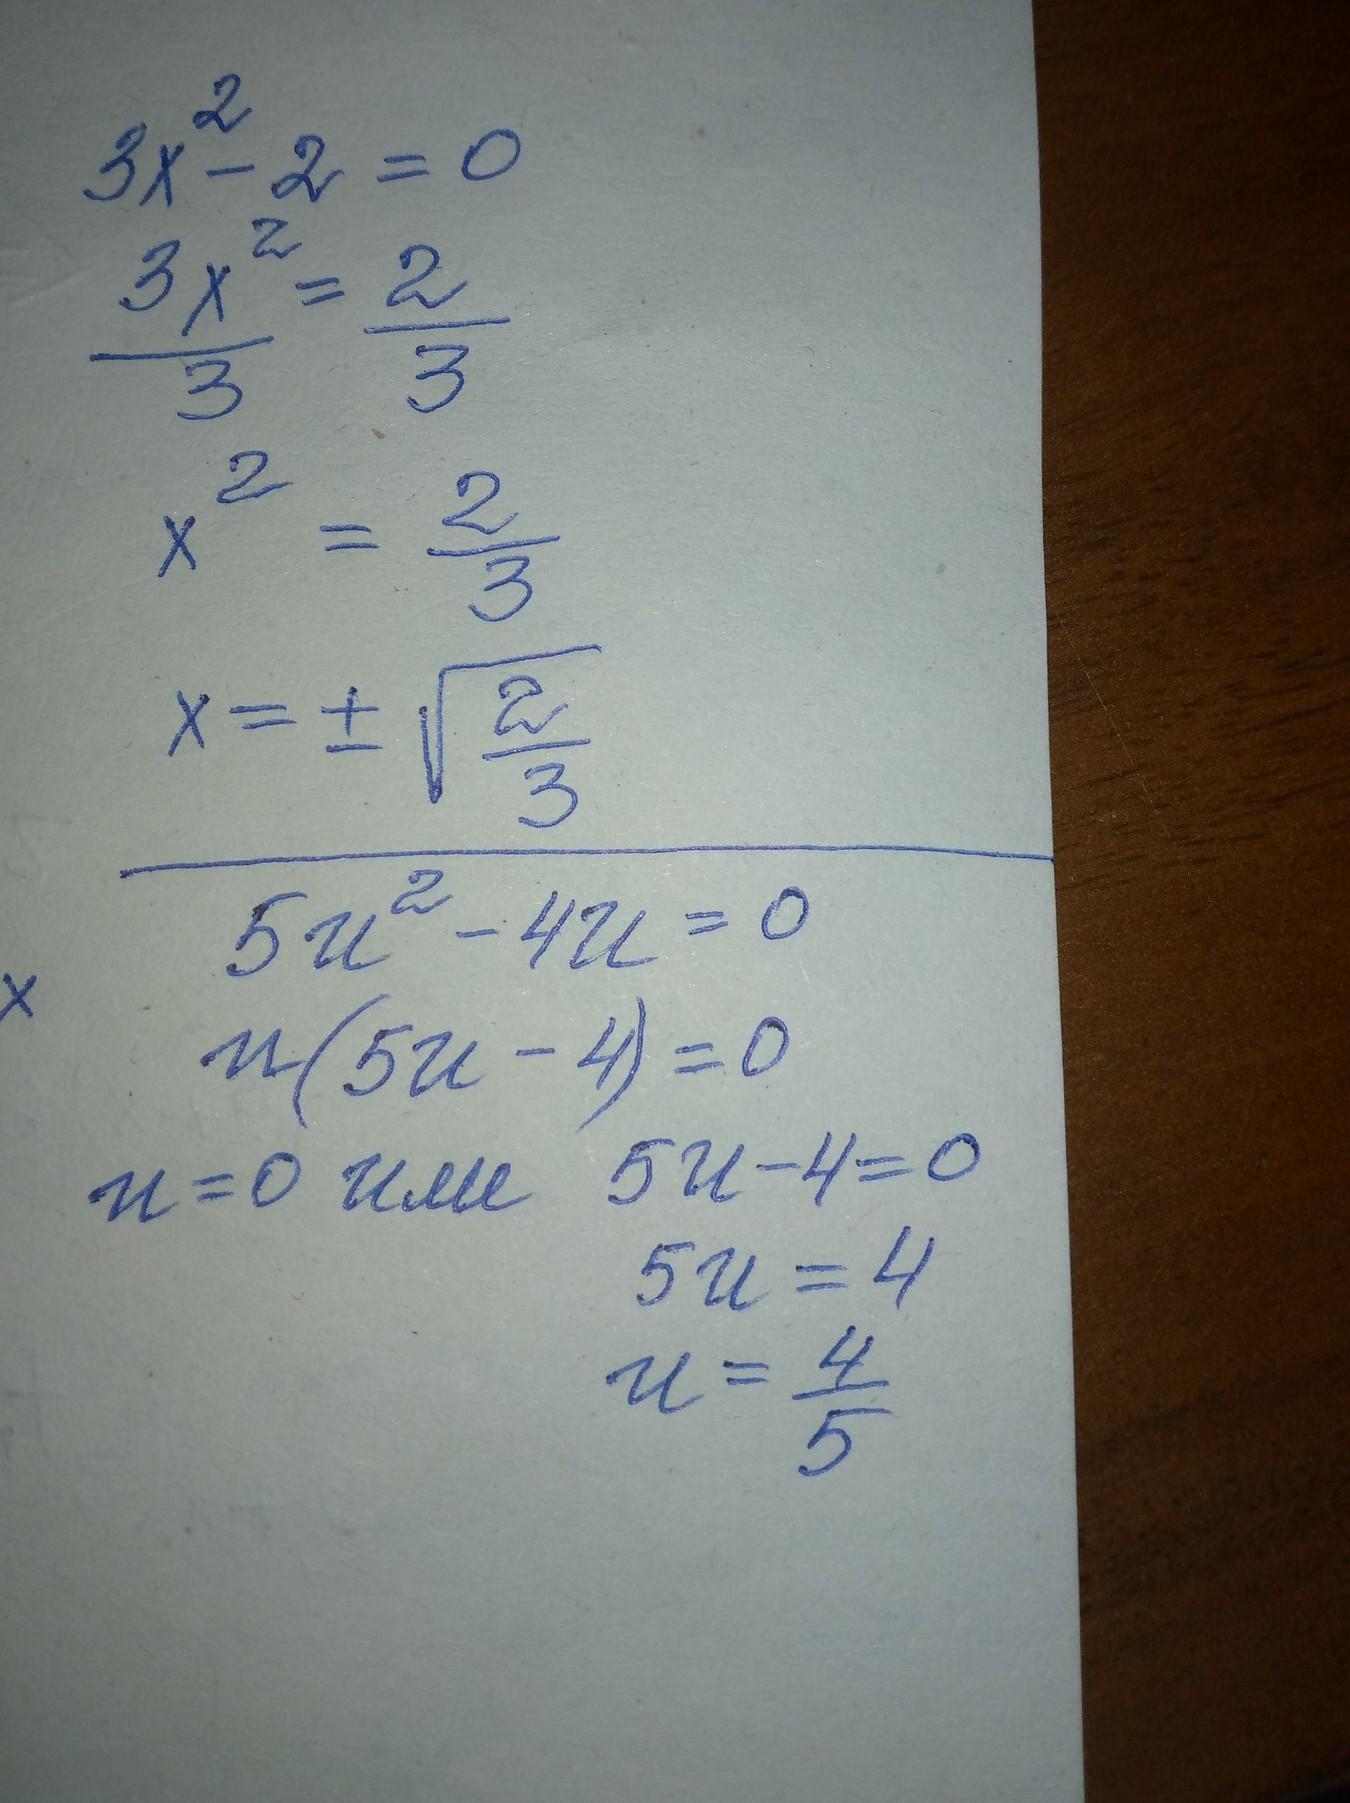 3x² - 2 = 0
3x²/3 = 2/3
x² = 2/3
x = ± √(2/3)
5u² - 4u = 0
x
u(5u - 4) = 0
u = 0 или 5u - 4 = 0
5u = 4
u = 4/5